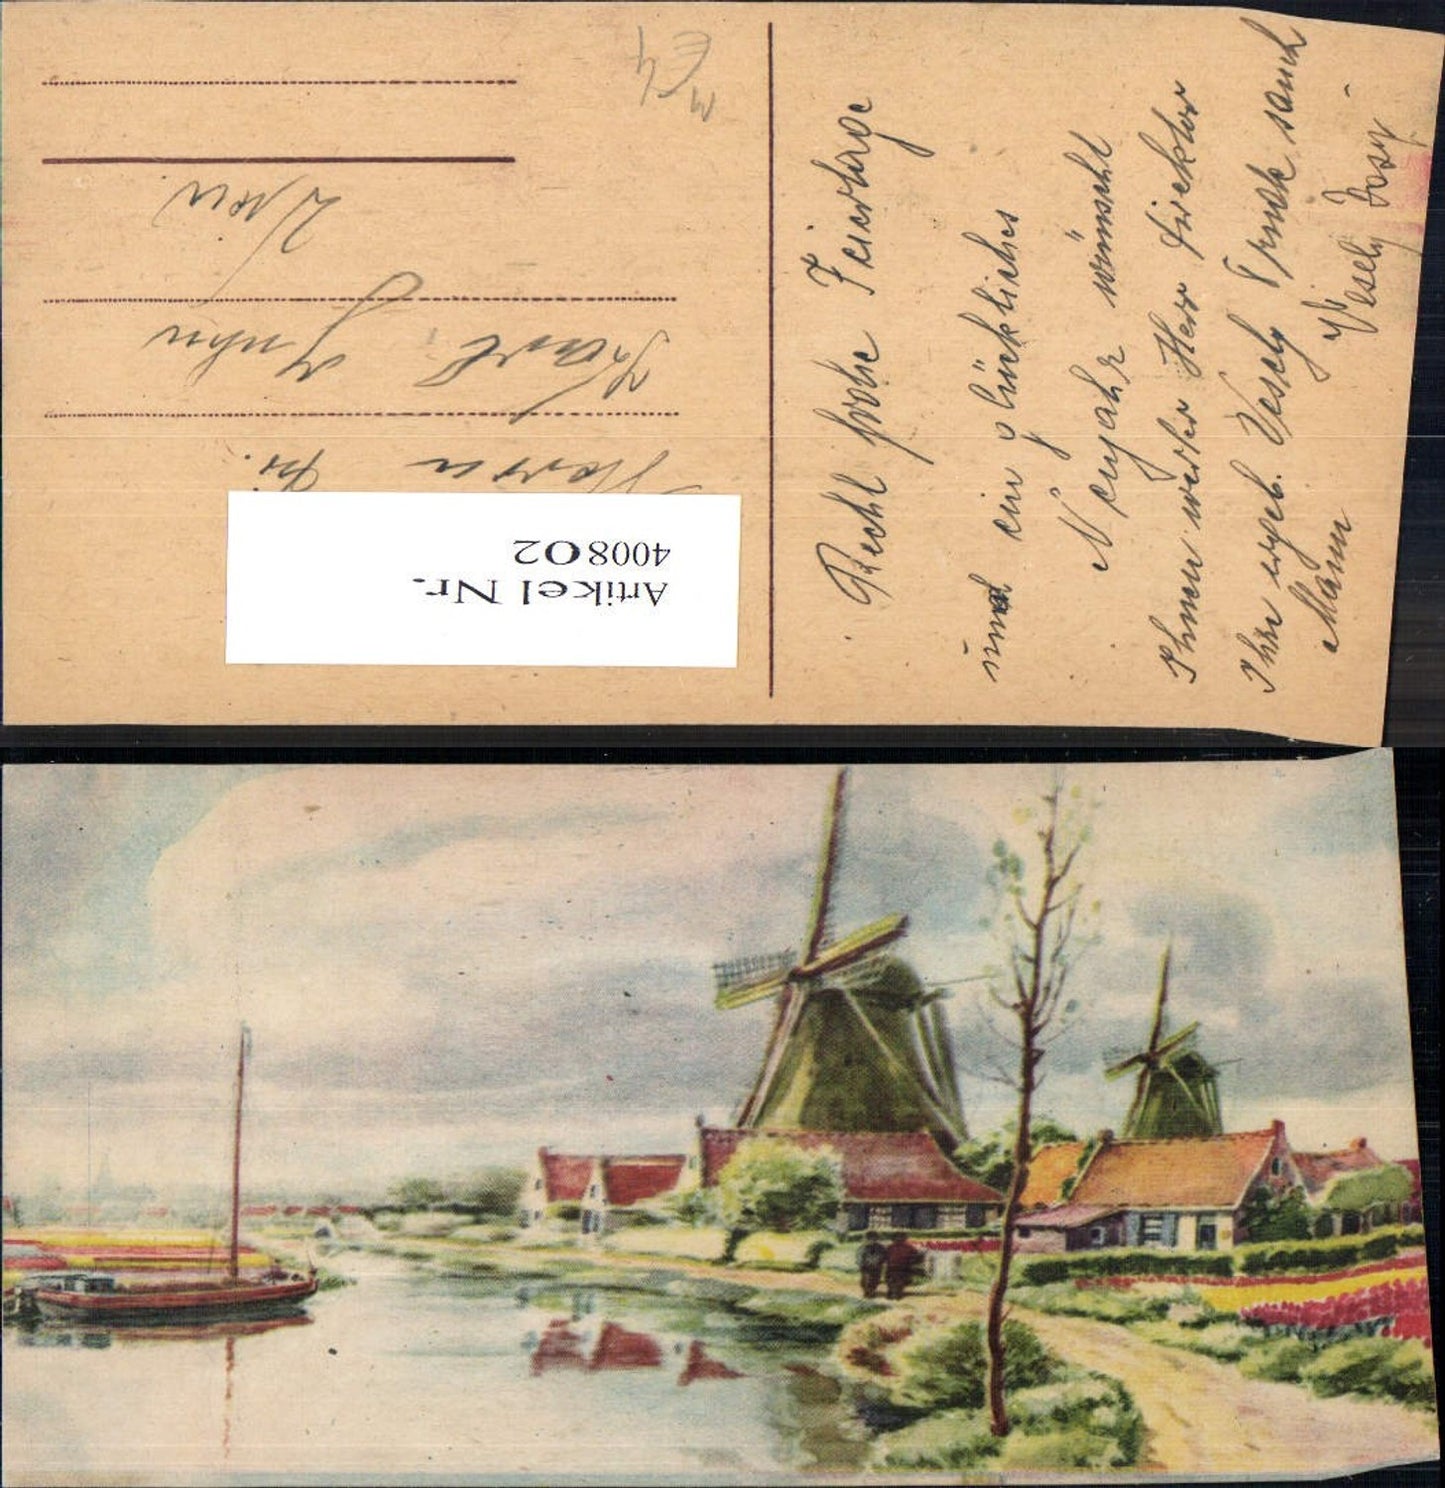 Recht frohe Feiertage
und ein glückliches
Neujahr wünscht
Ihnen werter Herr Direktor
Ihre ergeb. Vesely samt
Mann Vesely Josef
Herrn Dr.
Karl
Wien
Artikel Nr.
400802